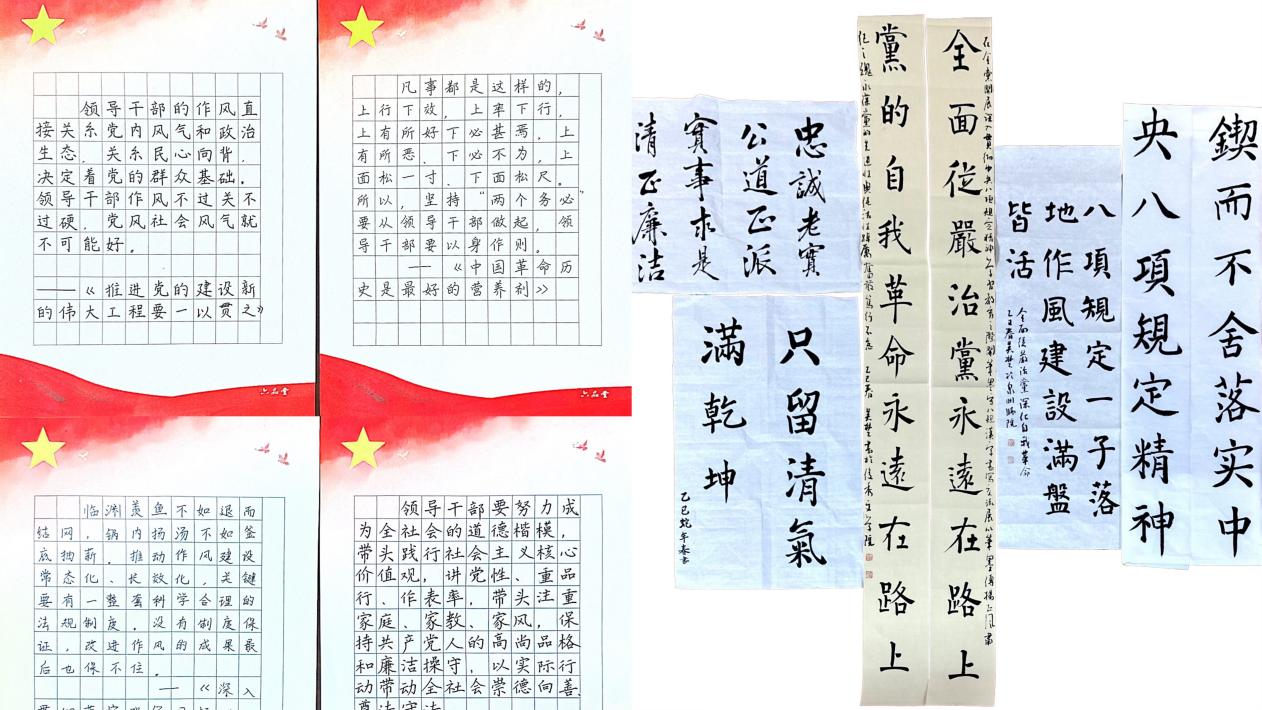 领导干部的作风直
接关系党内风气和政治
生态，关系民心向背，
决定着党的群众基础。
领导干部作风不过关不
过硬，党风社会风气就
不可能好。
——《推进党的建设新
的伟大工程要一以贯之》
六品堂
凡事都是这样的，
上行下效，上率下行，
上有所好下必甚焉，上
有所恶，下必不为，上
面松一寸，下面松尺。
所以，坚持“两个务必”
要从领导干部做起，领
导干部要以身作则。
——《中国革命历
史是最好的营养剂》
六品堂
临渊羡鱼不如退而
结网，锅内扬汤不如釜
底抽薪，推动作风建设
常态化、长效化，关键
要有一整套科学合理的
法规制度。没有制度保
证，改进作风的成果最
后也保不住。
——《深入
领导干部要努力成
为全社会的道德楷模，
带头践行社会主义核心
价值观，讲党性、重品
行、作表率，带头注重
家庭、家教、家风，保
持共产党人的高尚品格
和廉洁操守，以实际行
动带动全社会崇德向善、
尊法守法
忠誠老實
公道正派
實事求是
清正廉洁
只留清氣
滿乾坤
乙巳蛇年春書
全面從嚴治黨永遠在路上
黨的自我革命永遠在路上
八項規定一子落
地作風建設滿盤
皆活
全面從嚴治黨深化自我革命
鍥而不舍落实中
央八項規定精神